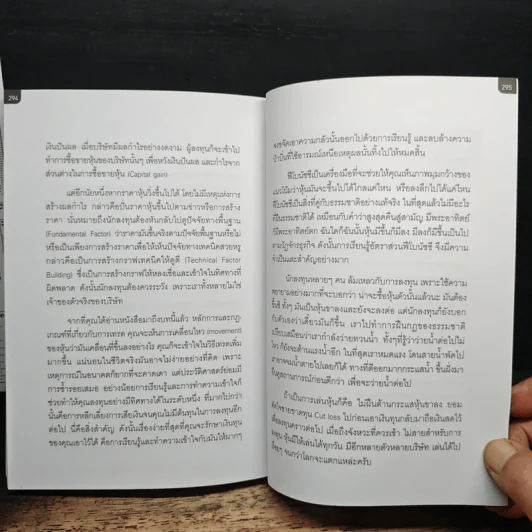 294
เงินปันผล เมื่อบริษัทมีผลกำไรอย่างงดงาม ผู้ลงทุนก็จะเข้าไป
ทำการซื้อขายหุ้นของบริษัทนั้นๆ เพื่อหวังเงินปันผล และกำไรจาก
ส่วนต่างในการซื้อขายหุ้น (Capital gain)
แต่อีกนัยหนึ่งหากราคาหุ้นวิ่งขึ้นไปได้ โดยไม่มีเหตุแห่งการ
สร้างผลกำไร กล่าวคือปั่นราคาหุ้นขึ้นไปตามข่าวหรือการสร้าง
ราคา นั่นหมายถึงนักลงทุนต้องหันกลับไปดูปัจจัยทางพื้นฐาน
(Fundamental Factor) ว่าราคามันขึ้นจริงตามปัจจัยพื้นฐานหรือไม่
หรือเป็นเพียงการสร้างราคาเพื่อให้เห็นปัจจัยทางเทคนิคสวยหรู
กล่าวคือเป็นการสร้างกราฟเทคนิคให้ดูดี (Technical Factor
Building) ซึ่งเป็นการสร้างกราฟให้หลงเชื่อและเข้าใจในทิศทางที่
ผิดพลาด ดังนั้นนักลงทุนต้องควรระวัง เพราะเราทั้งหลายไม่ใช่
เจ้าของตัวจริงของบริษัท
จากที่คุณได้อ่านหนังสือมาถึงบทนี้แล้ว หลักการและกฎ
เกณฑ์ที่เกี่ยวกับการเทรด คุณจะเห็นการเคลื่อนไหว (movement)
ของหุ้นว่ามันเคลื่อนที่ขึ้นลงอย่างไร คุณก็จะเข้าใจในวิธีเทรดเพิ่ม
มากขึ้น แน่นอนในชีวิตจริงมันอาจไม่ง่ายอย่างที่คิด เพราะ
เหตุการณ์ในอนาคตก็ยากที่จะคาดเดา แต่ประวัติศาสตร์ย่อมมี
การซ้ำรอยเสมอ อย่างน้อยการเรียนรู้และการทำความเข้าใจก็
ช่วยทำให้คุณลงทุนอย่างมีทิศทางได้ในระดับหนึ่ง ที่มากไปกว่า
นั้นคือการหลีกเลี่ยงการเสียเงินจนคุณไม่มีต้นทุนในการลงทุนอีก
ต่อไป นี่คือสิ่งสำคัญ ดังนั้นเรื่องง่ายที่สุดที่คุณจะรักษาเงินทุน
ของคุณเอาไว้ได้ คือการเรียนรู้และทำความเข้าใจกับมันให้มากๆ
295
จงขจัดเอาความกลัวนั้นออกไปด้วยการเรียนรู้ และลบล้างความ
ที่ใช้อารมณ์เหนือเหตุผลนั้นทิ้งไปให้หมดสิ้น
ฟีโบนัชชีเป็นเครื่องมือที่จะช่วยให้คุณเห็นภาพมุมกว้างของ
แนวโน้มว่าหุ้นมันจะขึ้นไปได้ไกลแค่ไหน หรือลงลึกไปได้แค่ไหน
ฟีโบนัชชีเป็นสิ่งที่คู่กับธรรมชาติอย่างแท้จริง ในที่สุดแล้วไม่มีอะไร
ฝืนธรรมชาติได้ เหมือนกับคำว่าสูงสุดคืนสู่สามัญ มีพระอาทิตย์
ก็มีพระอาทิตย์ตก ฉันใดก็ฉันนั้นหุ้นมีขึ้นก็มีลง มีลงก็มีขึ้นเป็นไป
ตามวัฏจักรธุรกิจ ดังนั้นการเรียนรู้อัตราส่วนฟีโบนัชชี จึงมีความ
จำเป็นและสำคัญอย่างมาก
นักลงทุนหลายๆ คน ล้มเหลวกับการลงทุน เพราะใช้ความ
พยายามอย่างมากที่จะบอกว่า น่าจะซื้อหุ้นตัวนั้นแล้วนะ มันต้อง
ขึ้นสิ ทั้งๆ มันเป็นหุ้นขาลงและยังจะลงต่อ แต่นักลงทุนก็ยังบอก
กับตัวเองว่าเดี๋ยวมันก็ขึ้น เราไปทำการฝืนกฎของธรรมชาติ
เปรียบเสมือนว่าเรากำลังว่ายทวนน้ำ ทั้งๆที่รู้ว่าว่ายน้ำต่อไปไม่
ไหว ก็ยังจะต้านแรงน้ำอีก ในที่สุดเราหมดแรง โดนสายน้ำพัดไป
อาจจมน้ำตายไปเลยก็ได้ ทางที่ดีออกมาจากกระแสน้ำ ขึ้นฝั่งมา
ดูสถานการณ์ก่อนดีกว่า เพื่อจะว่ายน้ำต่อไป
ถ้าเป็นการเล่นหุ้นก็คือ ไม่ฝืนต้านกระแสหุ้นขาลง ยอม
ขายขาดทุน Cut loss ไปก่อนเอาเงินทุนกลับมาถือเงินสดไว้
คราวต่อไป เมื่อถึงจังหวะที่ควรเข้า ไม่สายสำหรับการ
หุ้นมีให้เล่นได้ทุกวัน มีอีกหลายตัวหลายบริษัท เล่นได้ไป
จนกว่าโลกจะแตกแหละครับ